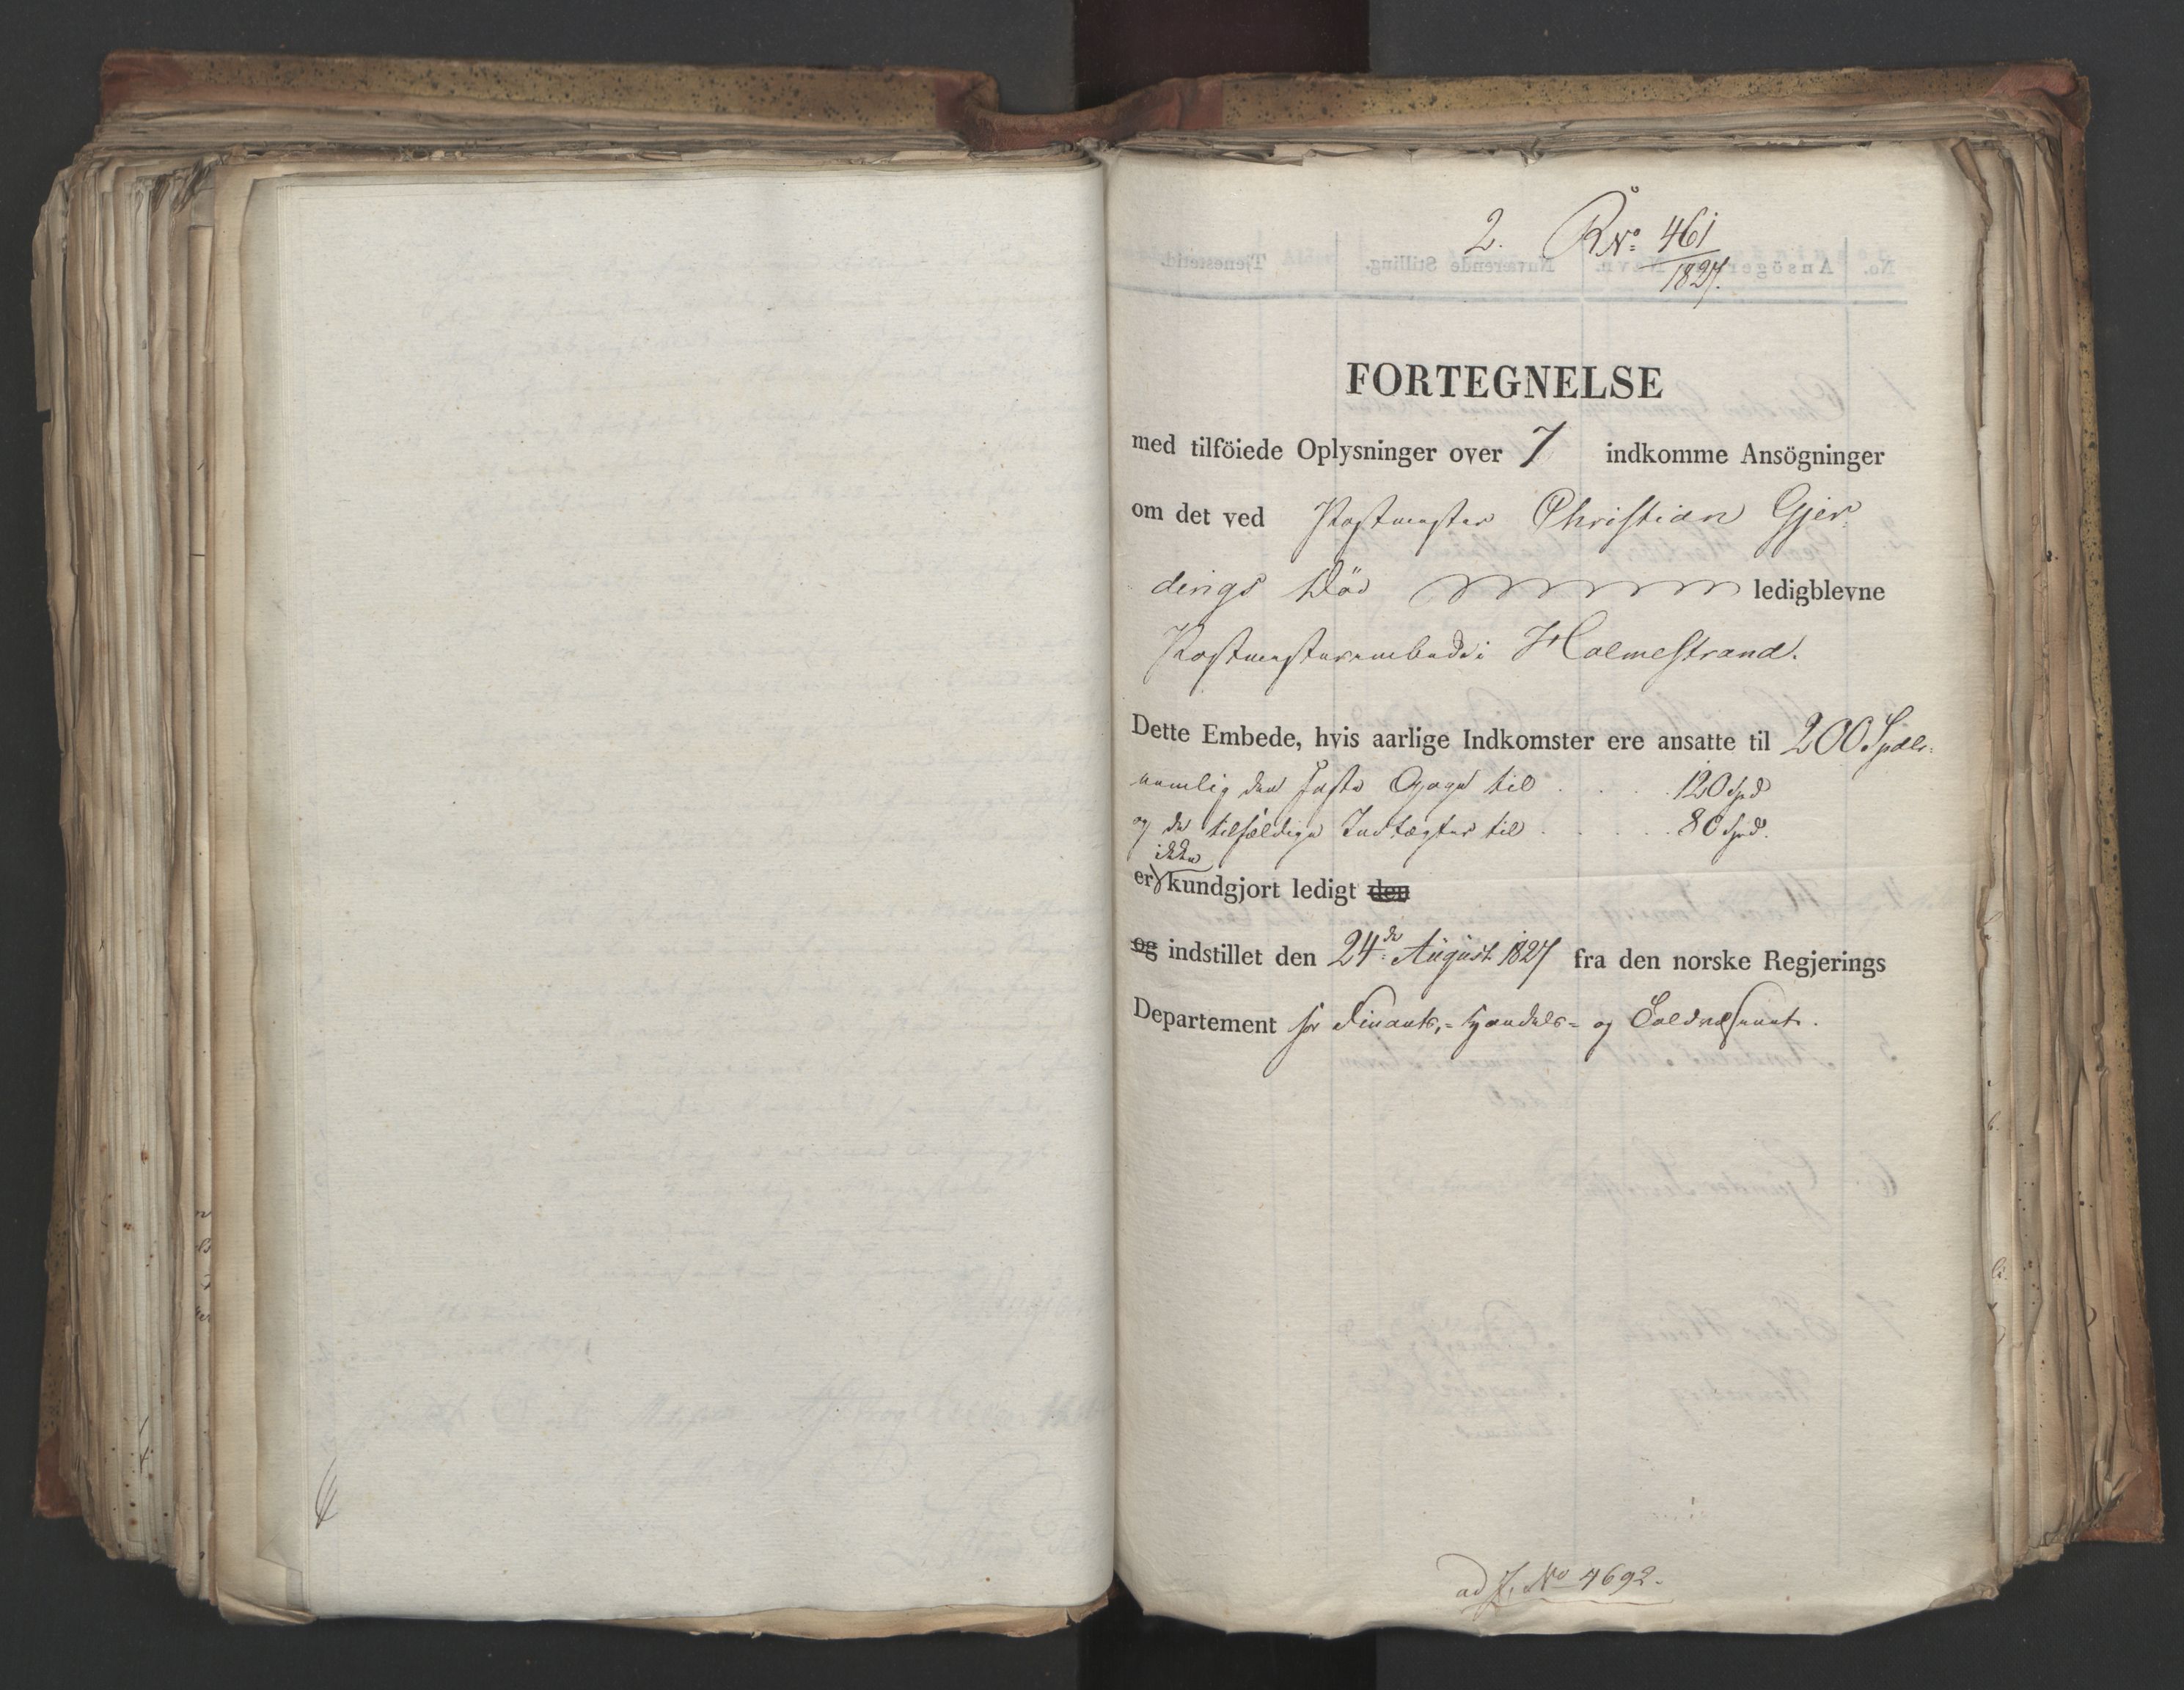 2. R No: 461
1827.
FORTEGNELSE
med tilföiede Oplysninger over 7 indkomme Ansögninger
om det ved Postmester Christian Gjer
dings Död ledigblevne
Postmesterembede i Holmestrand.
Dette Embede, hvis aarlige Indkomster ere ansatte til 200 Spdlr.
nemlig den faste Gage til . . . . 120 Spd
og de tilfældige Indtægter til . . . . . 80 Spd.
ikke
er kundgjort ledigt den
og indstillet den 24de August 1827 fra den norske Regjerings
Departement for Finants,- Handels- og Toldvæsenet.
ad J. No 4692.